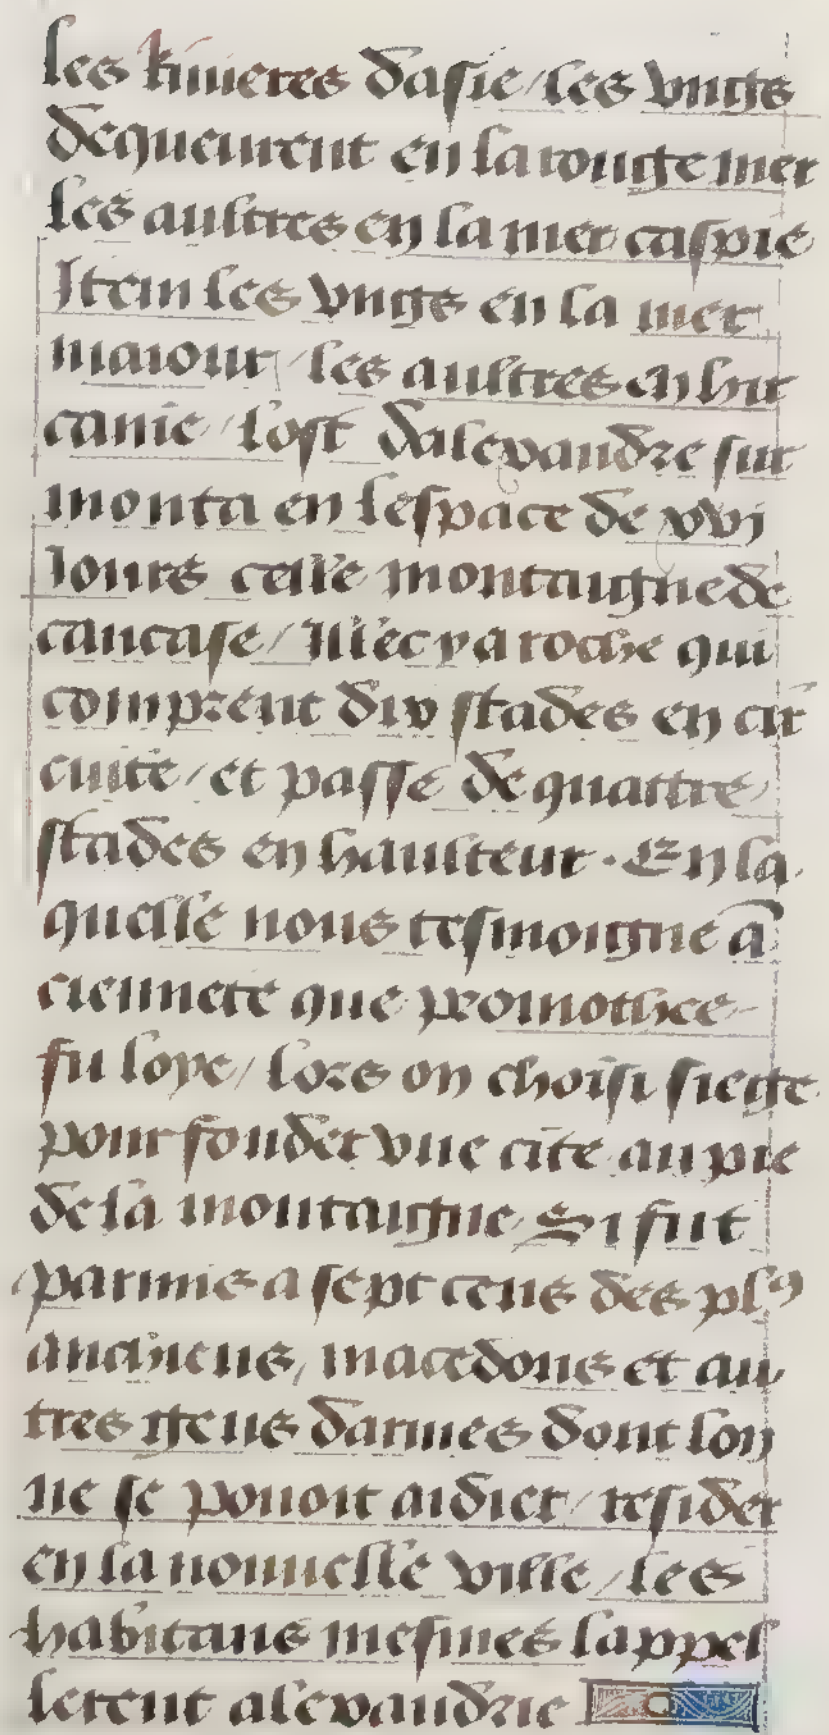 les Riuieres dasie / les vngs
dequeurent en la rouge mer
les aultres en la mer caspie
Item les vngs en la mer
maiour / les aultres en hir
canie / lost dalexandre sur
monta en lespace de xvij
Iours celle montaigne de
caucase / Illec y a roche qui
comprent dix stades en cir
cuite / et passe de quattre
stades en haulteur · En la
quelle nous tesmoigne ā
cienneté que promothee
fu loye / lors on choisi siege
pour fonder vne cite au pie
de la montaigne / Si fut
parmis a sept cens des plꝰ
anchiens / macedons et au
tres gens darmes dont lon
ne se pouoit aidier / resider
en la nouuelle ville / les
habitans mesmes lappel
lerent alexandrie